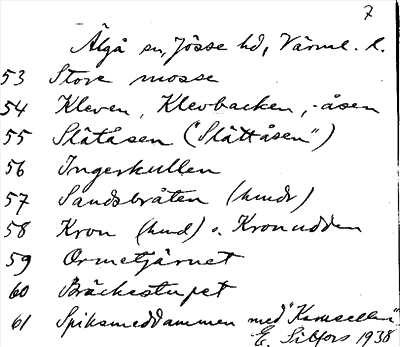 7
Älgå sn, Jösse hd, Värml. l.
53 Store mosse
54 Kleven, Klevbacken, -åsen
55 Slätåsen ("Slättåsen")
56 Ingerkullen
57 Sandsbråten (hmdr)
58 Kron (hmd) o. Kronudden
59 Ormetjärnet
60 Bräckestupet
61 Spiksmeddammen med "Kamselleri"
E. Silfors 1938